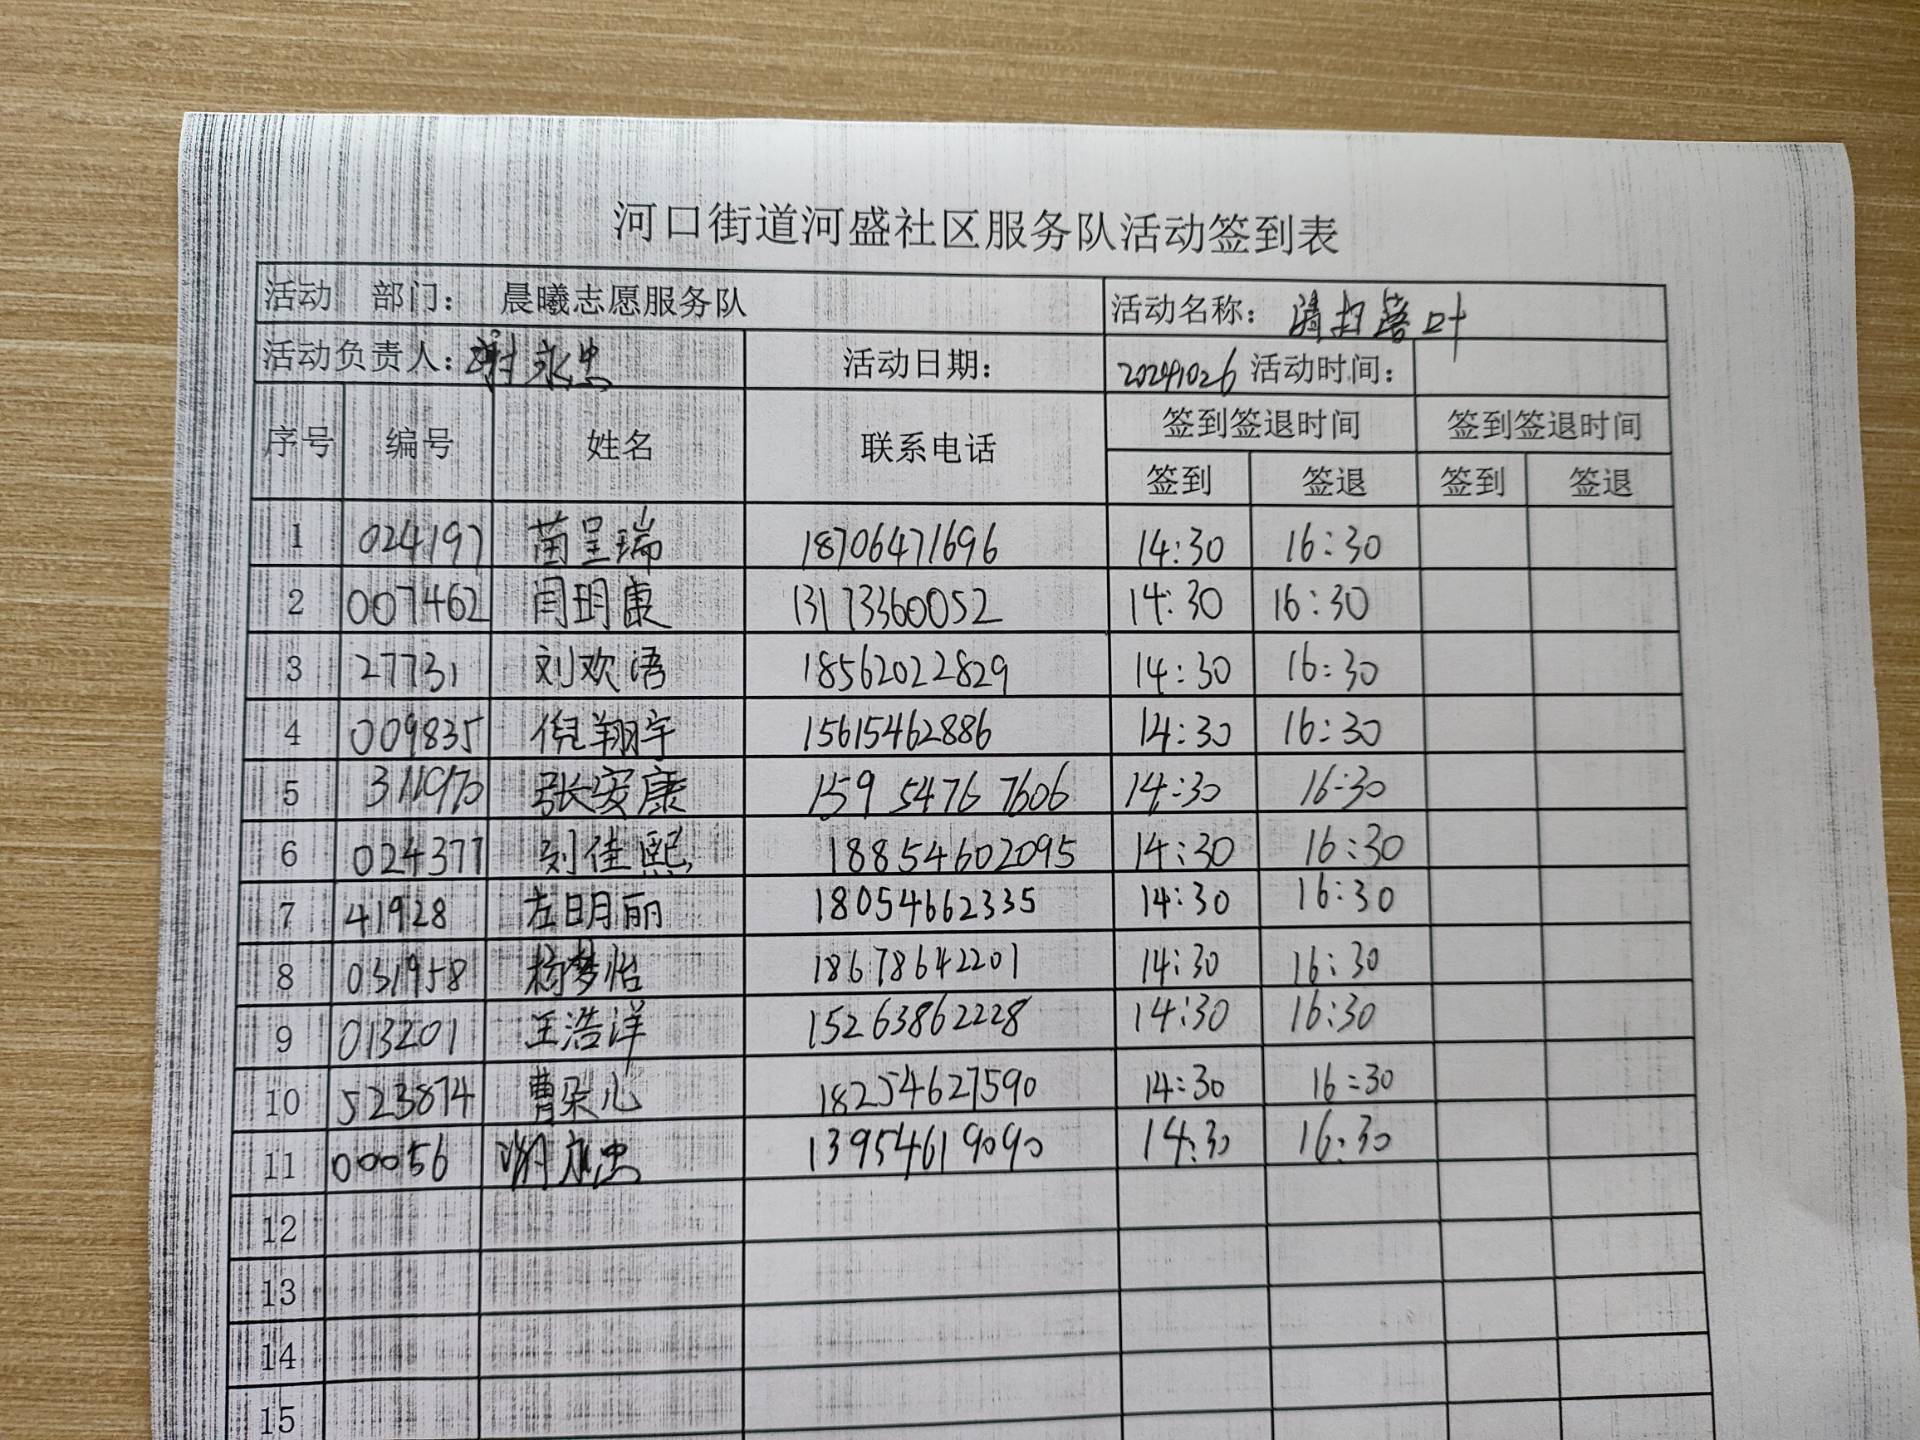 河口街道河盛社区服务队活动签到表
活动 部门： 晨曦志愿服务队 活动名称：清扫落叶
活动负责人：谢永忠 活动日期： 20241026 活动时间：
序号 编号 姓名 联系电话 签到签退时间 签到签退时间
签到 签退 签到 签退
1 024197 苗呈瑞 18706471696 14:30 16:30
2 007462 闫玥康 13173360052 14:30 16:30
3 27731 刘欢语 18562022829 14:30 16:30
4 009835 倪翔宇 15615462886 14:30 16:30
5 311970 张安康 159 5476 7606 14:30 16:30
6 024377 刘佳熙 18854602095 14:30 16:30
7 41928 左明丽 18054662335 14:30 16:30
8 031958 杨梦怡 18678642201 14:30 16:30
9 013201 王浩洋 15263862228 14:30 16:30
10 523874 曹朵儿 18254627590 14:30 16:30
11 00056 谢永忠 13954619090 14:30 16:30
12
13
14
15